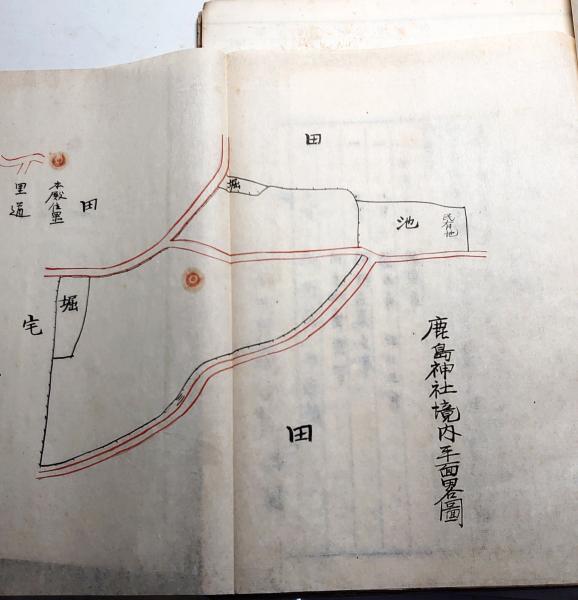 鹿島神社境内平面畧圖
田
池
民有地
堀
田
田
本殿位置
里道
堀
宅